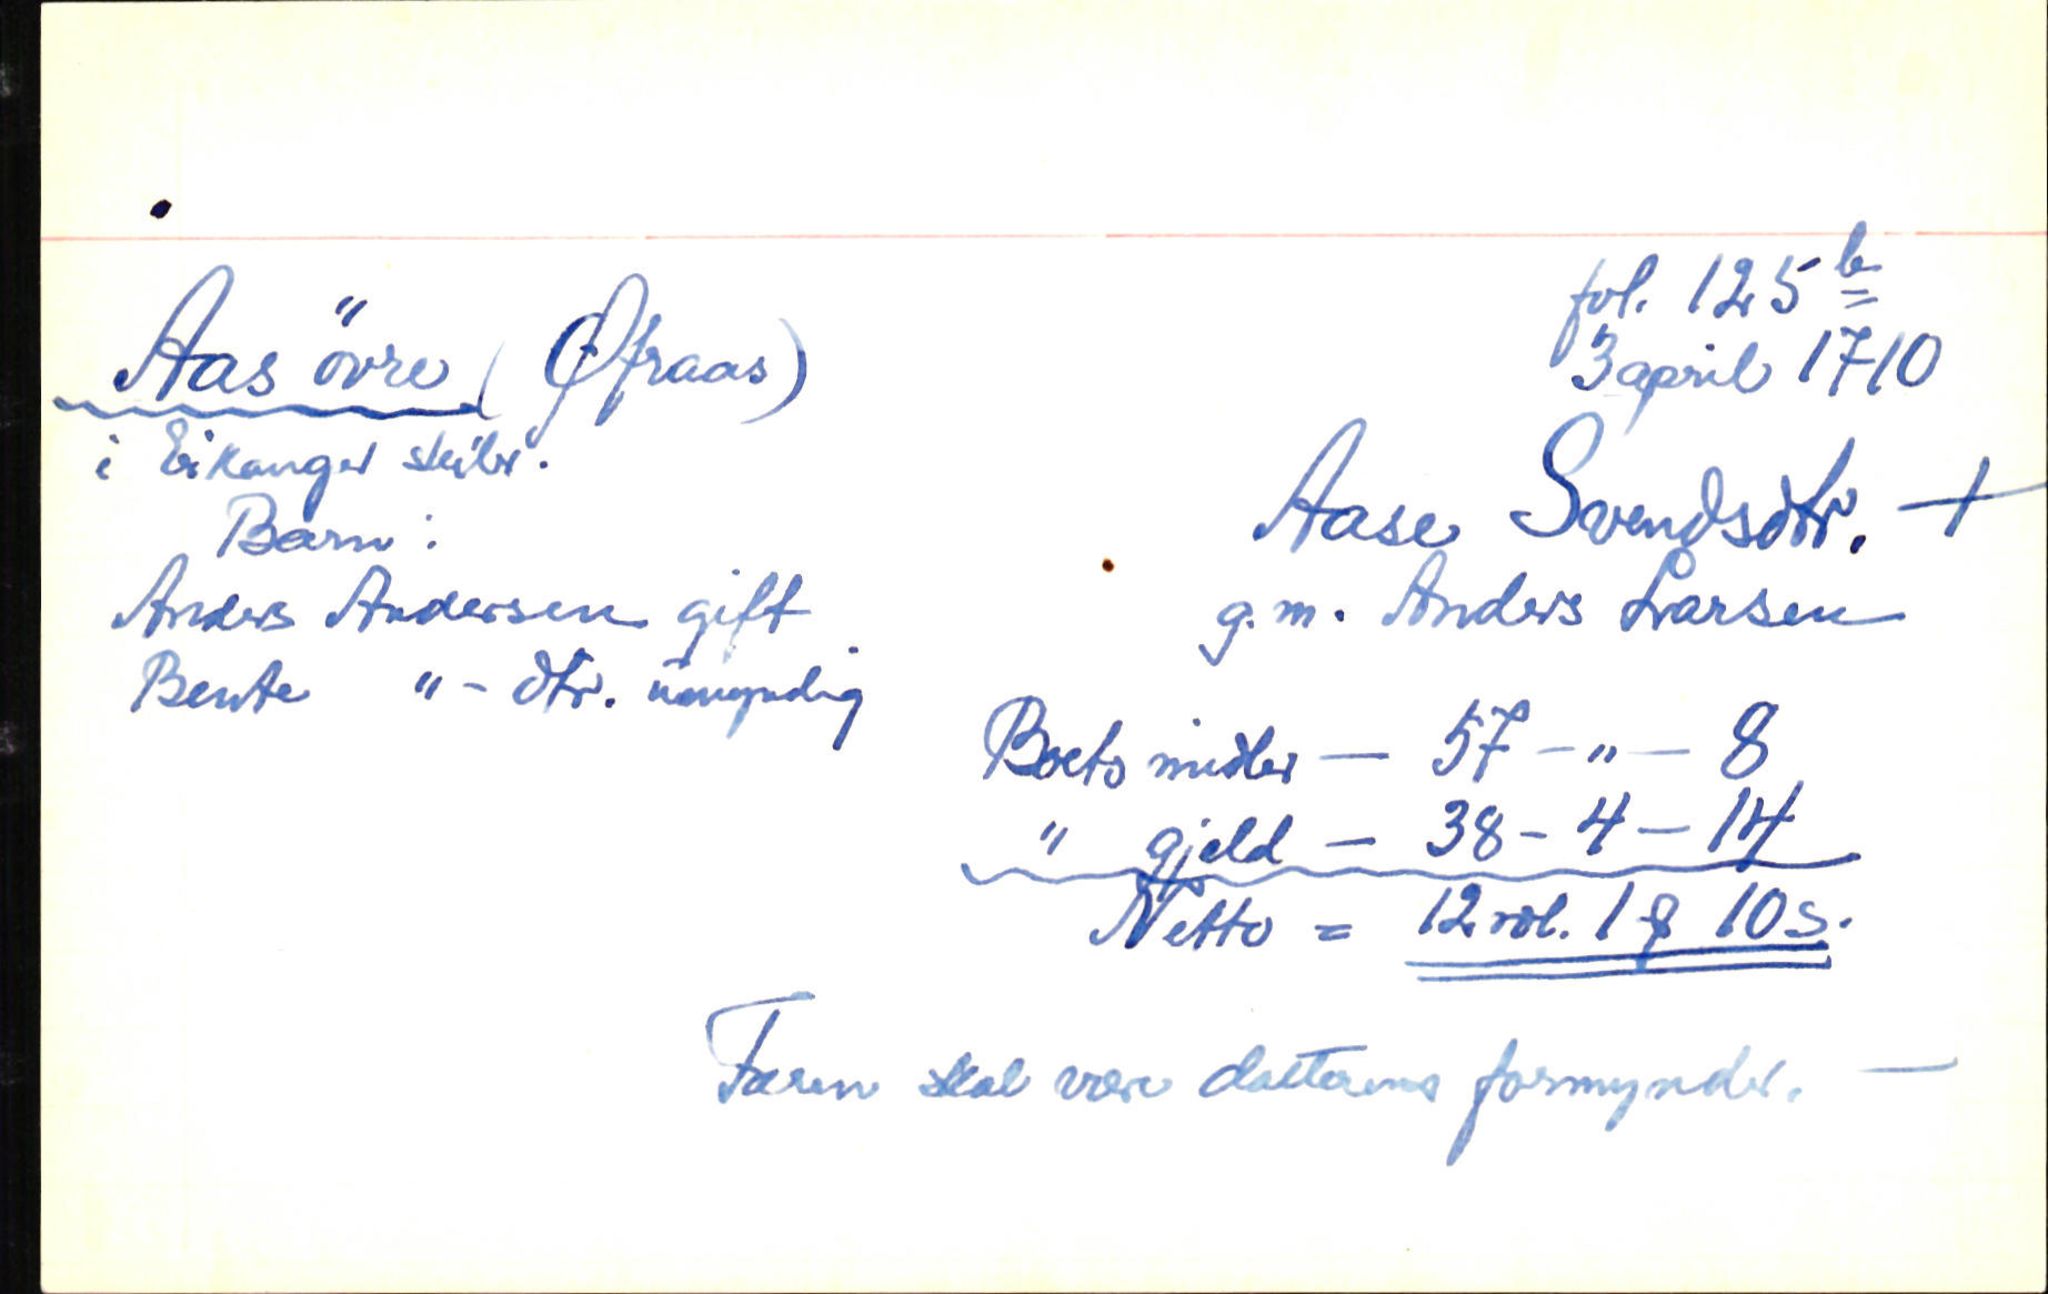 fol. 125 b
3 april 1710
Aas övre (Øfraas)
i Eikanger skibr.
Barn:
Anders Andersen gift
Bente " - dtr. umyndig
Aase Svendsdtr. +
g.m. Anders Larsen
Boets midler — 57 - " - 8
" gjeld — 38 - 4 - 14
Netto = 12 rdl. 1 10 s.
Faren skal være datterens formynder. —